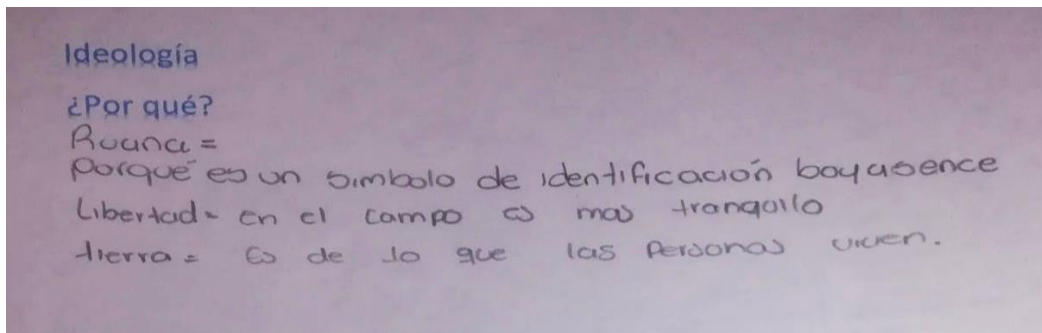 Ideología
¿Por qué?
Ruana =
Porqué es un simbolo de identificación boyasence
Libertad = en el campo es mas tranquilo
tierra = Es de lo que las personas viven.